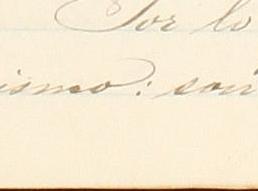 Por lo
ismo: son